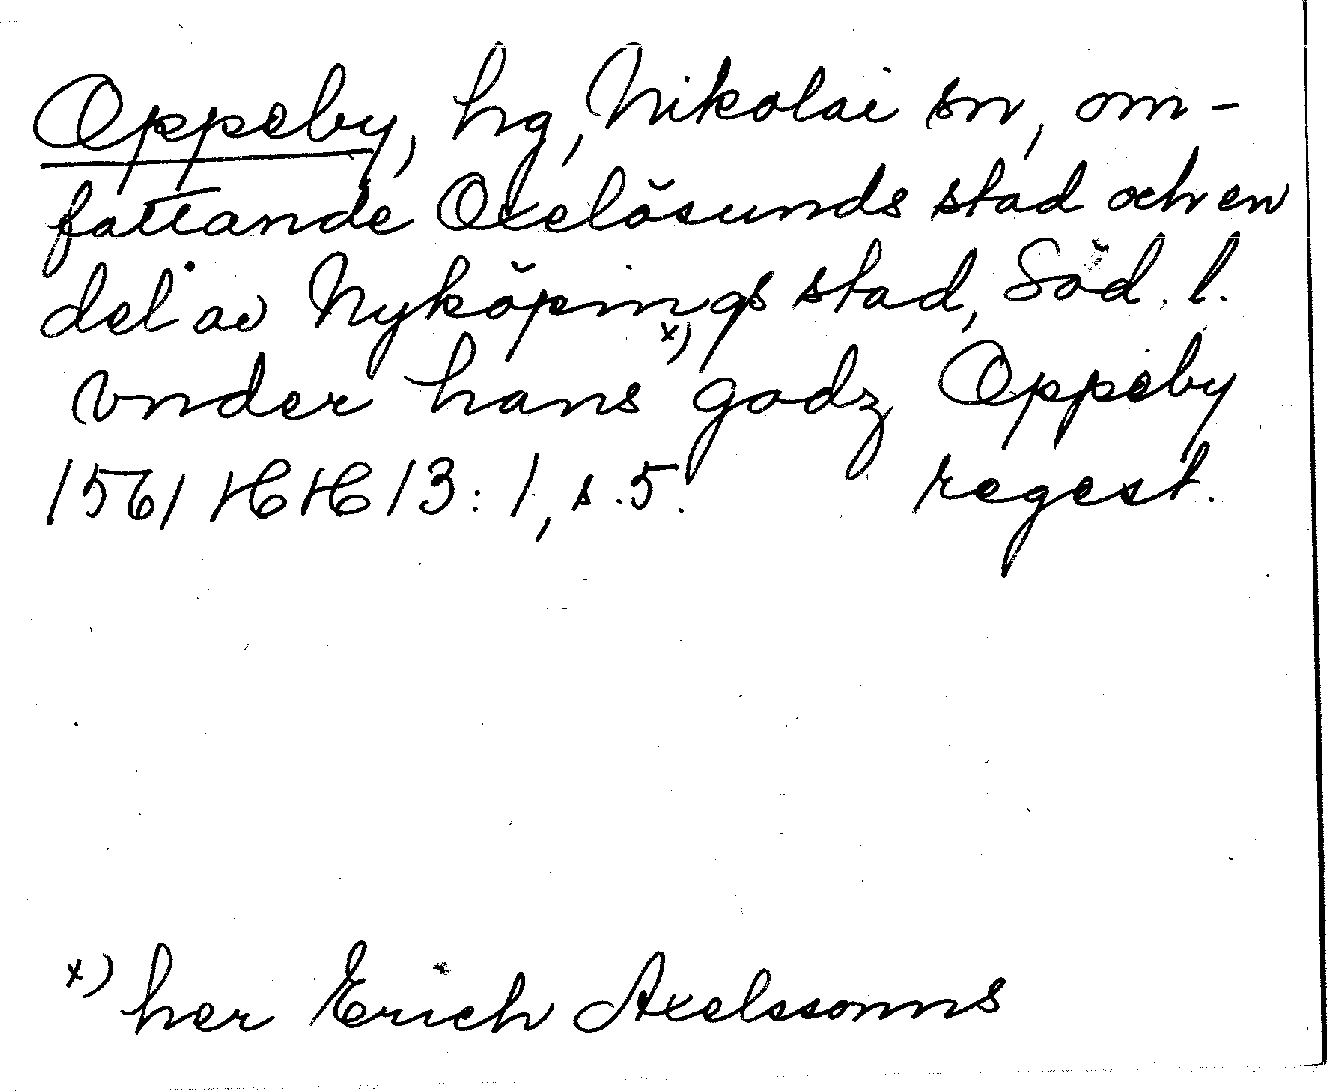 Oppeby, hg, Nikolai sn, om-
fattande Oxelösunds stad och en
del av Nyköpings stad, Söd. l.
vnder hans x) godz Oppeby
1561 HH 13:1, s. 5. regest.
x) her Erich Axelssonns